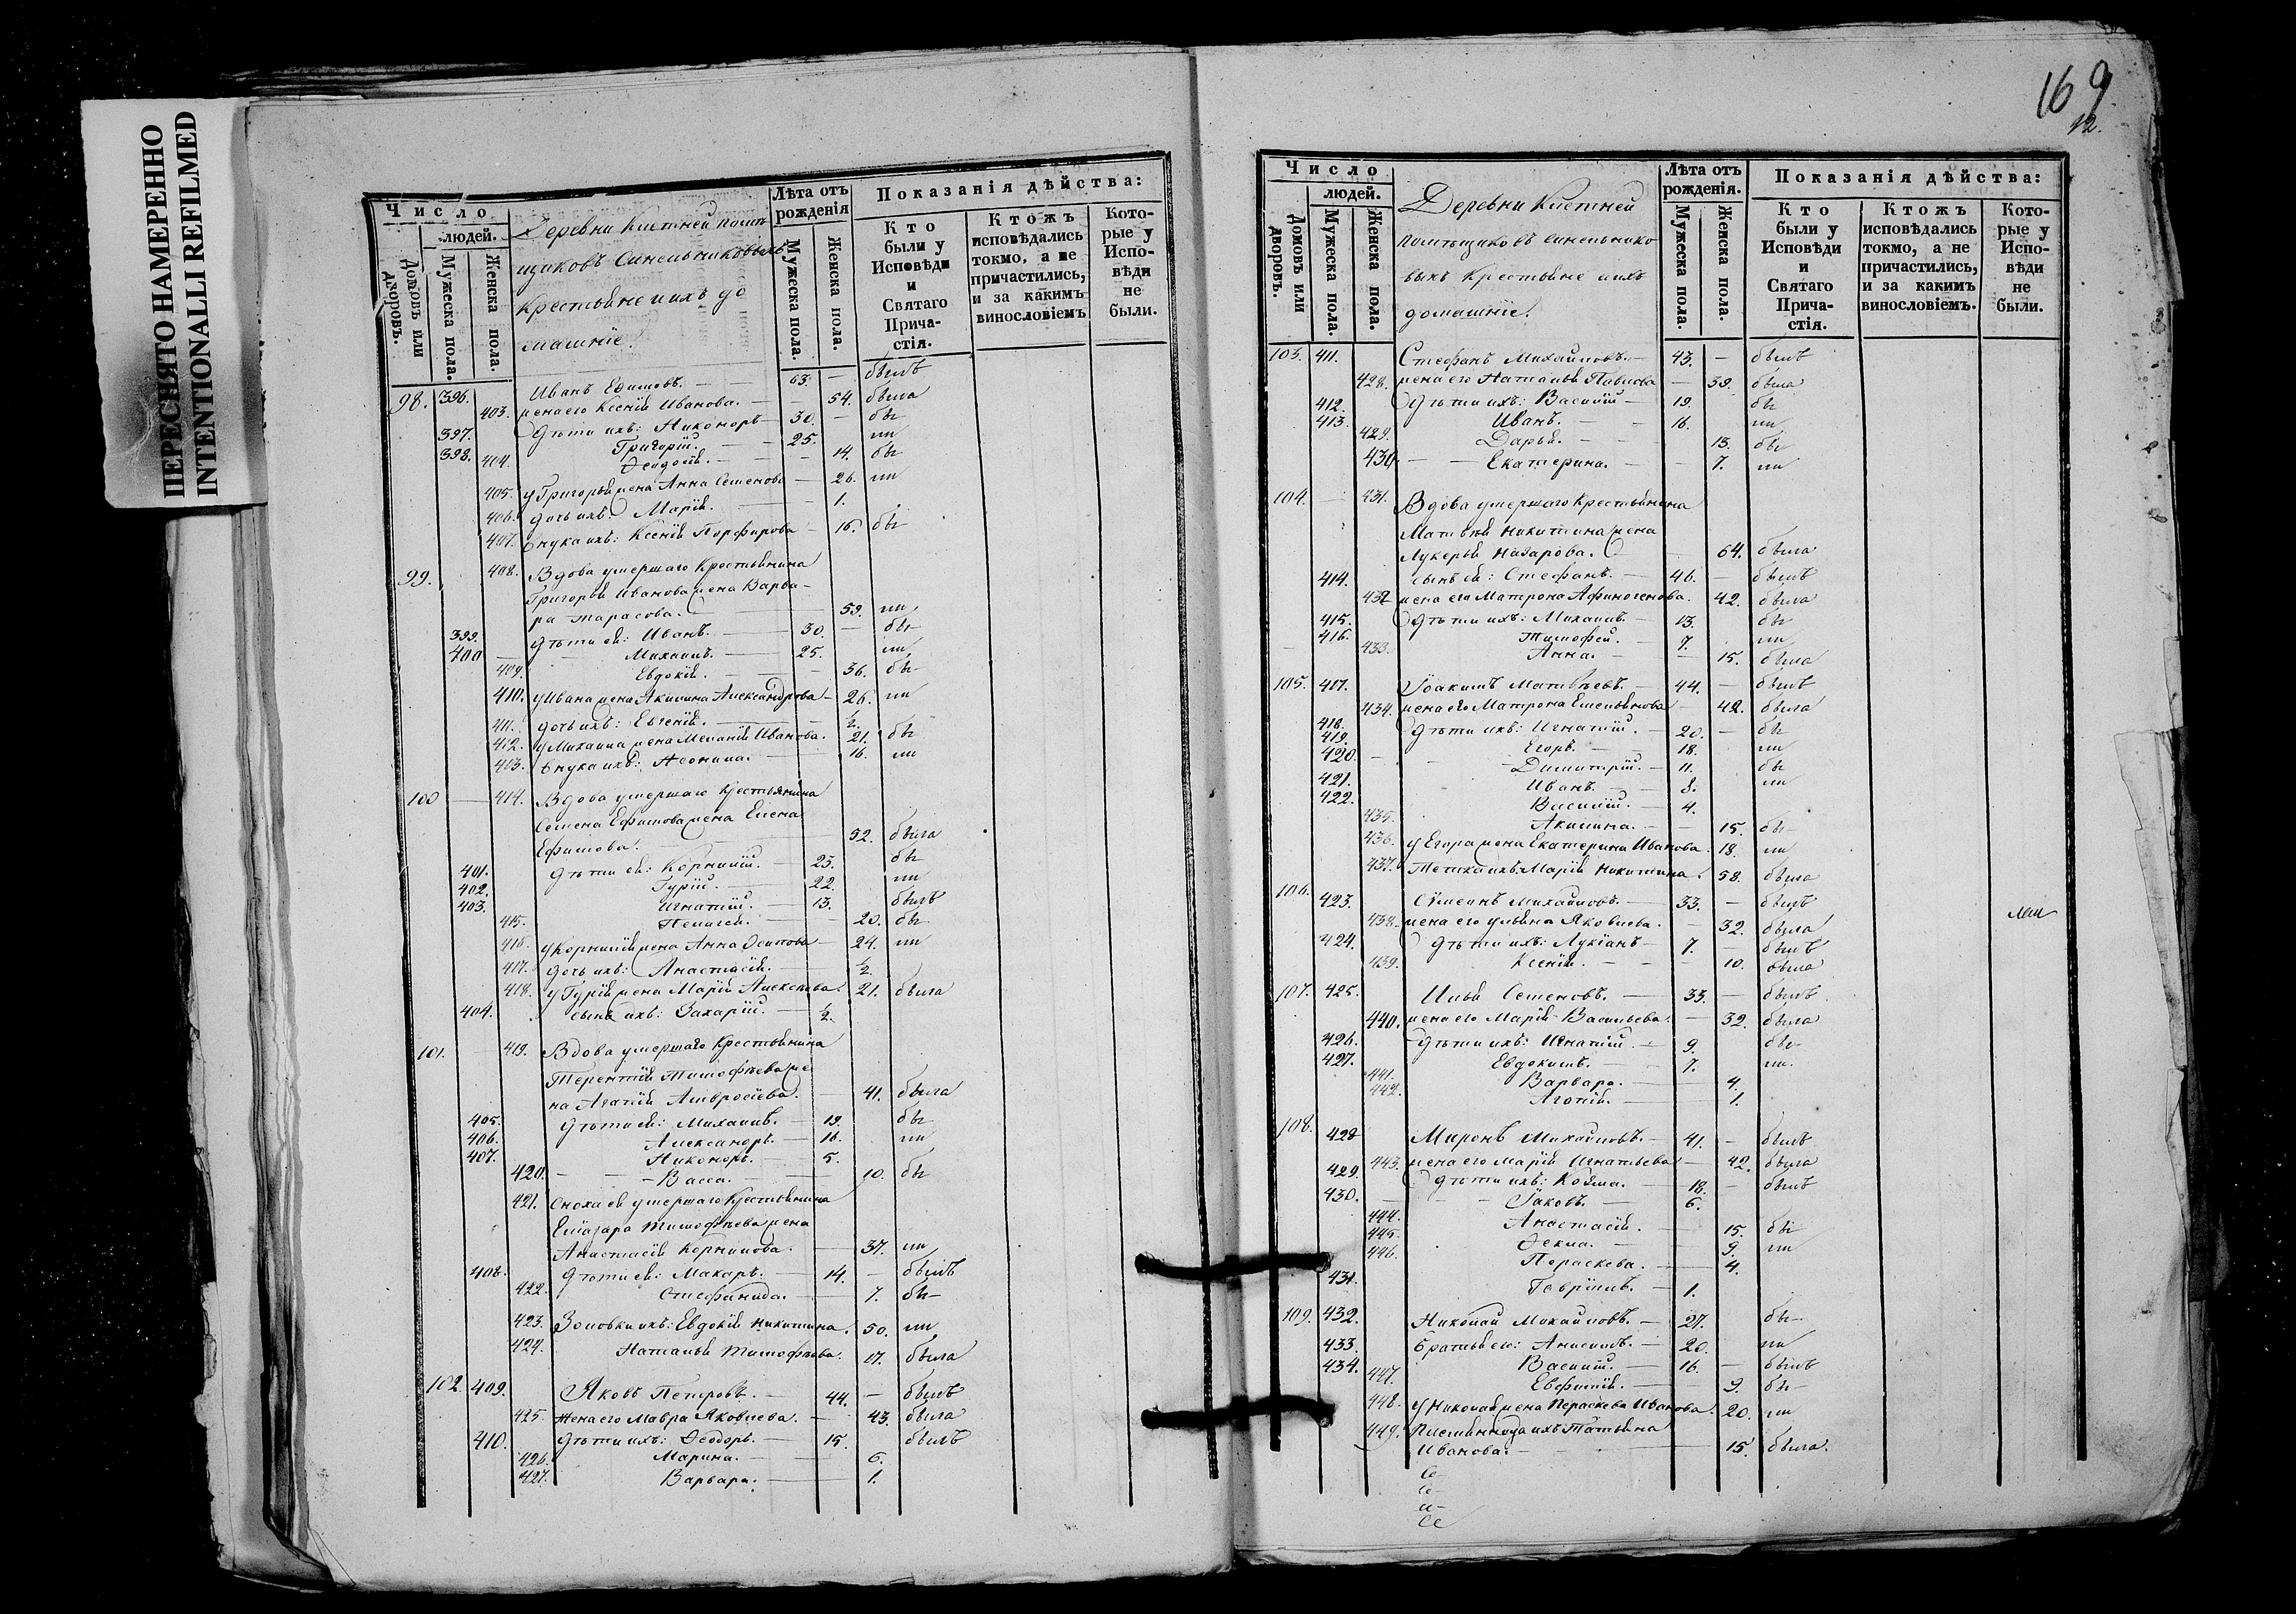 ПЕРЕСНЯТО НАМЕРЕННО
INTENTIONALLI REFILMED
Число
людей.
Домовъ или дворовъ.
Мужеска пола.
Женска пола.
Деревни Кистней помѣ
щиковъ Синельниковыхъ
Крестьяне и ихъ до
машніе.
Лѣта отъ рожденія
Мужеска пола.
Женска пола.
Показанія дѣйства:
Кто были у Исповѣди и Святаго Прича-стія.
Ктожъ исповѣдались токмо, а не причастились, и за какимъ винословіемъ
Кото-рые у Испо-вѣди не были.
98. 396. Иванъ Ефимовъ. — 63. — былъ
403. жена его Ксенія Иванова. — 54. была
397. Дѣти ихъ: Никоноръ 30. — бы
398. Григорій. — 25. ли
404. Ѳеодосія. — 14. бы
405. у Григорья жена Анна Семенова — 26. ли
406. дочь ихъ: Марія. — 1.
407. внука ихъ: Ксенія Порфирова — 16. бы
99. 408. Вдова умершаго Крестьянина
Григорья Иванова жена Варва-
ра Тарасова. — 59. ли
399. дѣти ея: Иванъ. — 30. — бы
400 Михаилъ. — 25. ли
409. Евдокія. — 36. бы
410. у Ивана жена Акилина Александрова — 26. ли
411. дочь ихъ: Евгенія. — ½.
412. у Михаила жена Меланія Иванова. 21. бы
403. внука ихъ: Леонила. — 16. ли
100 — 414. Вдова умершаго Крестьянина
Семена Ефимова жена Елена
Ефимова. — 52. была
401. дѣти ея: Корнилій. — 23. бы
402. Гурій. — 22. ли
403. Игнатій. — 13. былъ
415. Пелагея. — 20. бы
416. у Корнилія жена Анна Осипова — 24. ли
417. дочь ихъ: Анастасія. — ½.
418. у Гурія жена Марія Алексѣева. 21. была
404. сынъ ихъ: Захарій. — ½.
101. — 419. Вдова умершаго Крестьянина
Терентія Тимофѣева же
на Агапія Амвросіева. — 41. была
405. дѣти ея: Михаилъ. — 19. бы
406. Александръ. — 16. ли
407. Никоноръ. — 5.
420. — Васса. — 10. бы
421. Сноха ея умершаго Крестьянина
Елизара Тимофѣева жена
Анастасія Корнилова. — 37. ли
408. дѣти ея: Макаръ. — 14. — былъ
422. Стефанида. — 7. бы
423. Золовки ихъ: Евдокія Никитина. 50. ли
424. Наталья Тимофѣева. 17. была
102. 409. Яковъ Петровъ. — 44. — былъ
425. жена его Мавра Яковлева. — 43. была
410. дѣти ихъ: Ѳеодоръ. — 15. былъ
426. Марина. — 6.
427. Варвара. — 1.
169
12.
Число
людей.
Домовъ или дворовъ.
Мужеска пола.
Женска пола.
Деревни Кистней
помѣщиковъ Синельнико
выхъ Крестьяне и ихъ
домашніе.
Лѣта отъ рожденія.
Мужеска пола.
Женска пола.
Показанія дѣйства:
Кто были у Исповѣди и Святаго Прича-стія.
Ктожъ исповѣдались токмо, а не причастились, и за какимъ винословіемъ.
Кото-рые у Испо-вѣди не были.
103. 411. Стефанъ Михайловъ. — 43. — былъ
428. жена его Наталья Павлова — 39. была
412. Дѣти ихъ: Василій — 19. бы
413. Иванъ. — 16. ли
429. Дарья. — 13. бы
430 — Екатерина. — 7. ли
104. — 431. Вдова умершаго Крестьянина
Матвѣя Никитина жена
Лукерья Назарова. 64. была
414. сынъ ея: Стефанъ. — 46. — былъ
432 жена его Матрона Афиногенова. 42. была
415. Дѣти ихъ: Михаилъ — 13. бы
416. Тимофей. — 7. ли
433. Анна. — 15. была
105. 417. Іоакимъ Матвѣевъ. — 44. — былъ
434. жена его Матрона Емельянова — 42. была
418. Дѣти ихъ: Игнатій. — 20. — бы
419. Егоръ. — 18. ли
420. — Димитрій. — 11. бы
421. Иванъ. — 8. ли
422. Василій. — 4.
435. Акилина. — 15. бы
436. у Егора жена Екатерина Иванова. 18. ли
437. Тетка ихъ: Марія Никитина. 58. была
106. 423. Симеонъ Михайловъ. — 33. — былъ
438. жена его Ульяна Яковлева. — 32. была
424. дѣти ихъ: Лукіанъ — 7. — былъ
439. Ксенія. — 10. была
107. 425. Илья Семеновъ. — 33. — былъ
440. жена его Марія Васильева. — 32. была
426. Дѣти ихъ: Игнатій. — 9. бы
427. Евдокимъ. — 7. ли.
441. Варвара. — 4.
442. Агапія. — 1.
108. 428 Миронъ Михайловъ. — 41. — былъ
443. жена его Марія Игнатьева — 42. была
429. Дѣти ихъ: Козма. — 18. — былъ
430. Іаковъ. — 6.
444. Анастасія. — 15. бы
445. Ѳекла. — 9. ли
446. Параскева. — 4.
431. Гавріилъ. — 1.
109. 432. Николай Михайловъ. — 27. бы
433. братья его: Анисимъ. — 20. ли
434. Василій. — 16. — былъ
447. Евфимія. — 9. бы
448. у Николая жена Параскева Иванова. 20. ли
449. Племянница ихъ Татьяна
Иванова. — 15. была.